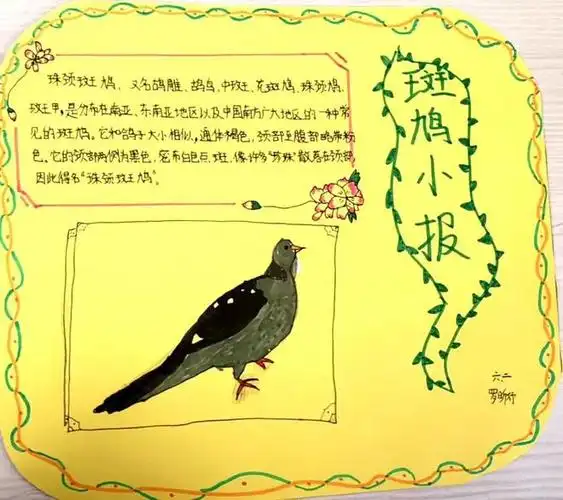 斑鸠小报
珠颈斑鸠，又名鸪雕、鸪鸟、中斑、花斑鸠、珠颈鸠、
斑甲，是分布在南亚、东南亚地区以及中国南方广大地区的一种常
见的斑鸠。它和鸽子大小相似，通体褐色，颈部至腹部略带粉
色。它的颈部两侧为黑色，密布白色点斑，像许多“珍珠”散落在颈部，
因此得名“珠颈斑鸠”。
六.二